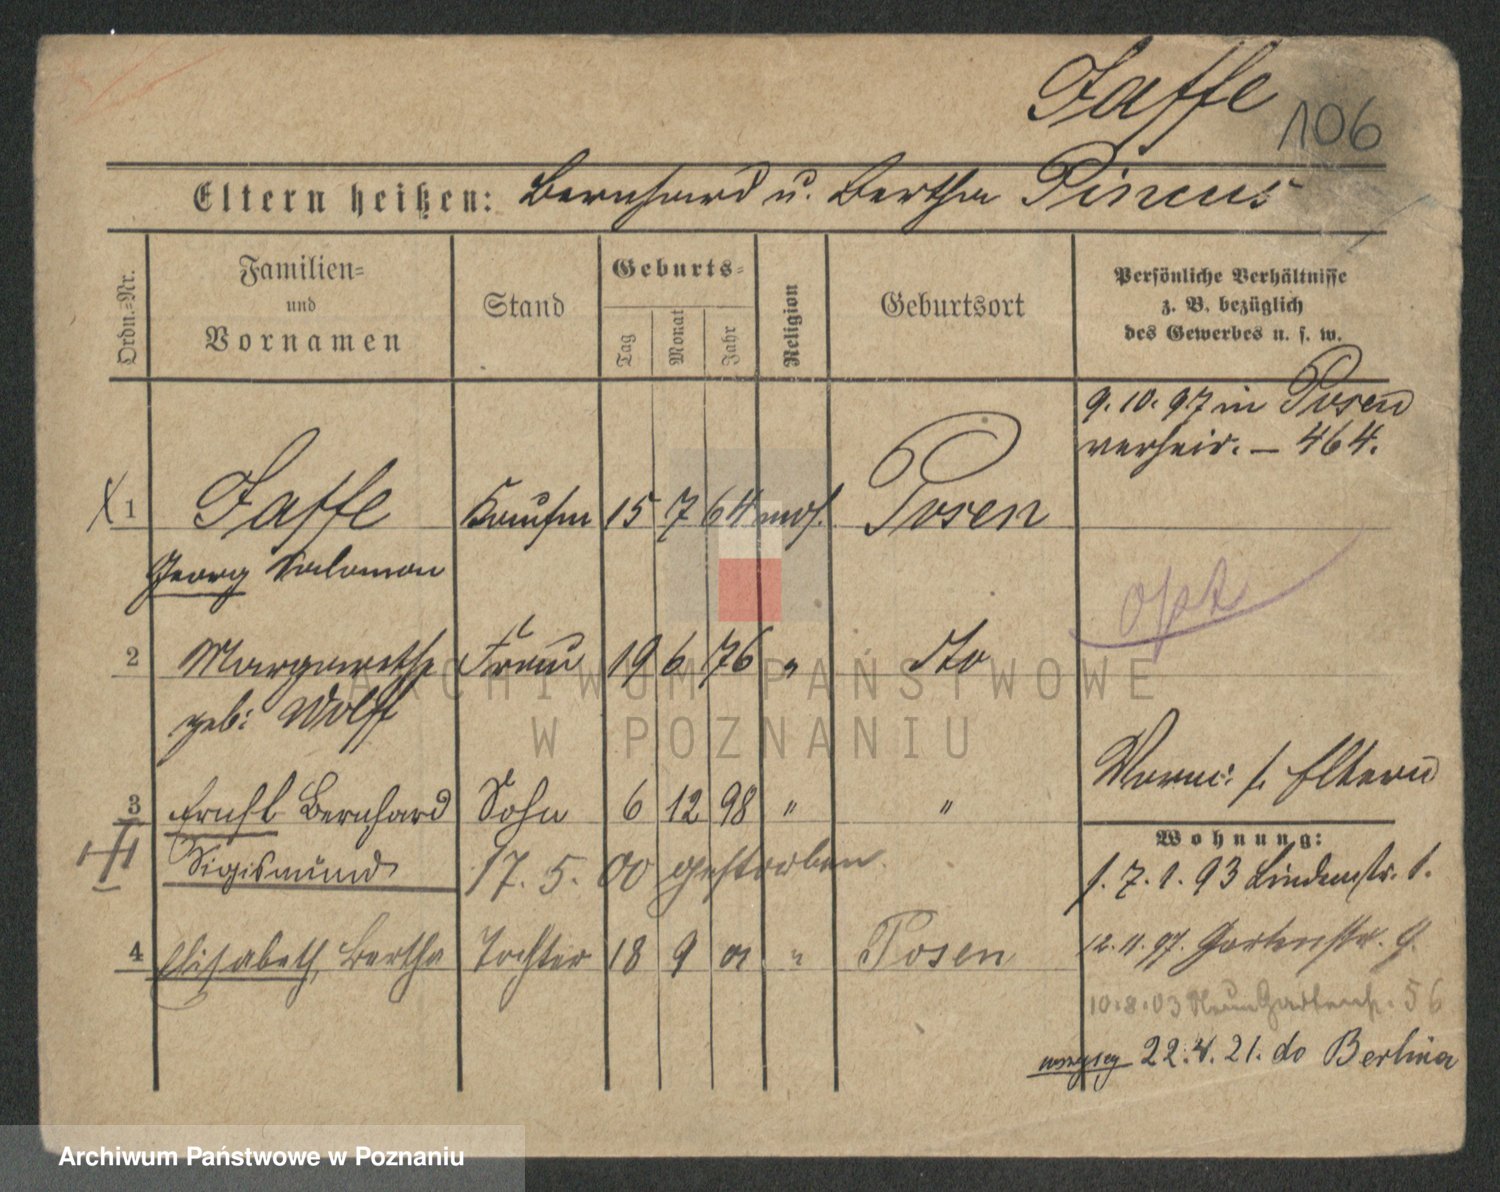 Jaffe
106
Eltern heißen: Bernhard u. Bertha Pincus
Ordn.=Nr.
Familien=
und
Vornamen
Stand
Geburts=
Tag
Monat
Jahr
Religion
Geburtsort
Persönliche Verhältnisse
z. B. bezüglich
des Gewerbes u. s. w.
9.10.97 in Posen
verheir. — 464.
1 Jaffe Kaufm 15 7 64 mos. Posen
Georg Salomon
opt
2 Margarethe Frau 19 6 76 " dto
geb: Wolff
Vorm: s. Eltern
3 Ernst Bernhard Sohn 6 12 98 " "
Sigismund 17. 5. 00 gestorben
Wohnung:
1. 7. 93 Lindenstr. 1.
4 Elisabeth, Bertha Tochter 18 9 01 " Posen
12. 11. 97. Gartenstr. 9.
10.8.03 Neue Gartenstr. 56
22.4.21. do Berlina
ARCHIWUM PAŃSTWOWE
W POZNANIU
Archiwum Państwowe w Poznaniu